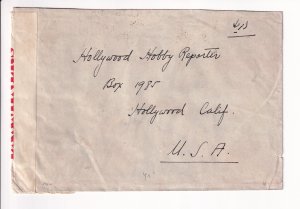 Hollywood Hobby Reporter
Box 1985
Hollywood Calif.
U. S. A